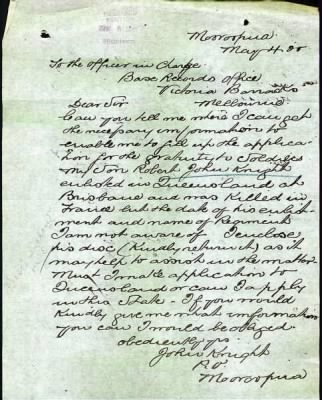 Mooroopna
May 4. 20
To the Officer in Charge
Base Records Office
Victoria Barracks
Melbourne
Dear Sir
Can you tell me where I can get
the necessary information to
enable me to fill up the applica
tion for the gratuity to Soldiers
My Son Robert John Knight
enlisted in Queensland at
Brisbane and was killed in
France but the date of his enlist
ment and name of Regiment
I am not aware of I enclose
his disc (Kindly return it) as it
may help to assist in the matter
Must I make application to
Queensland or can I apply
in this State - If you would
Kindly give me what information
you can I would be obliged
obediently yrs
John Knight
P.O.
Mooroopna